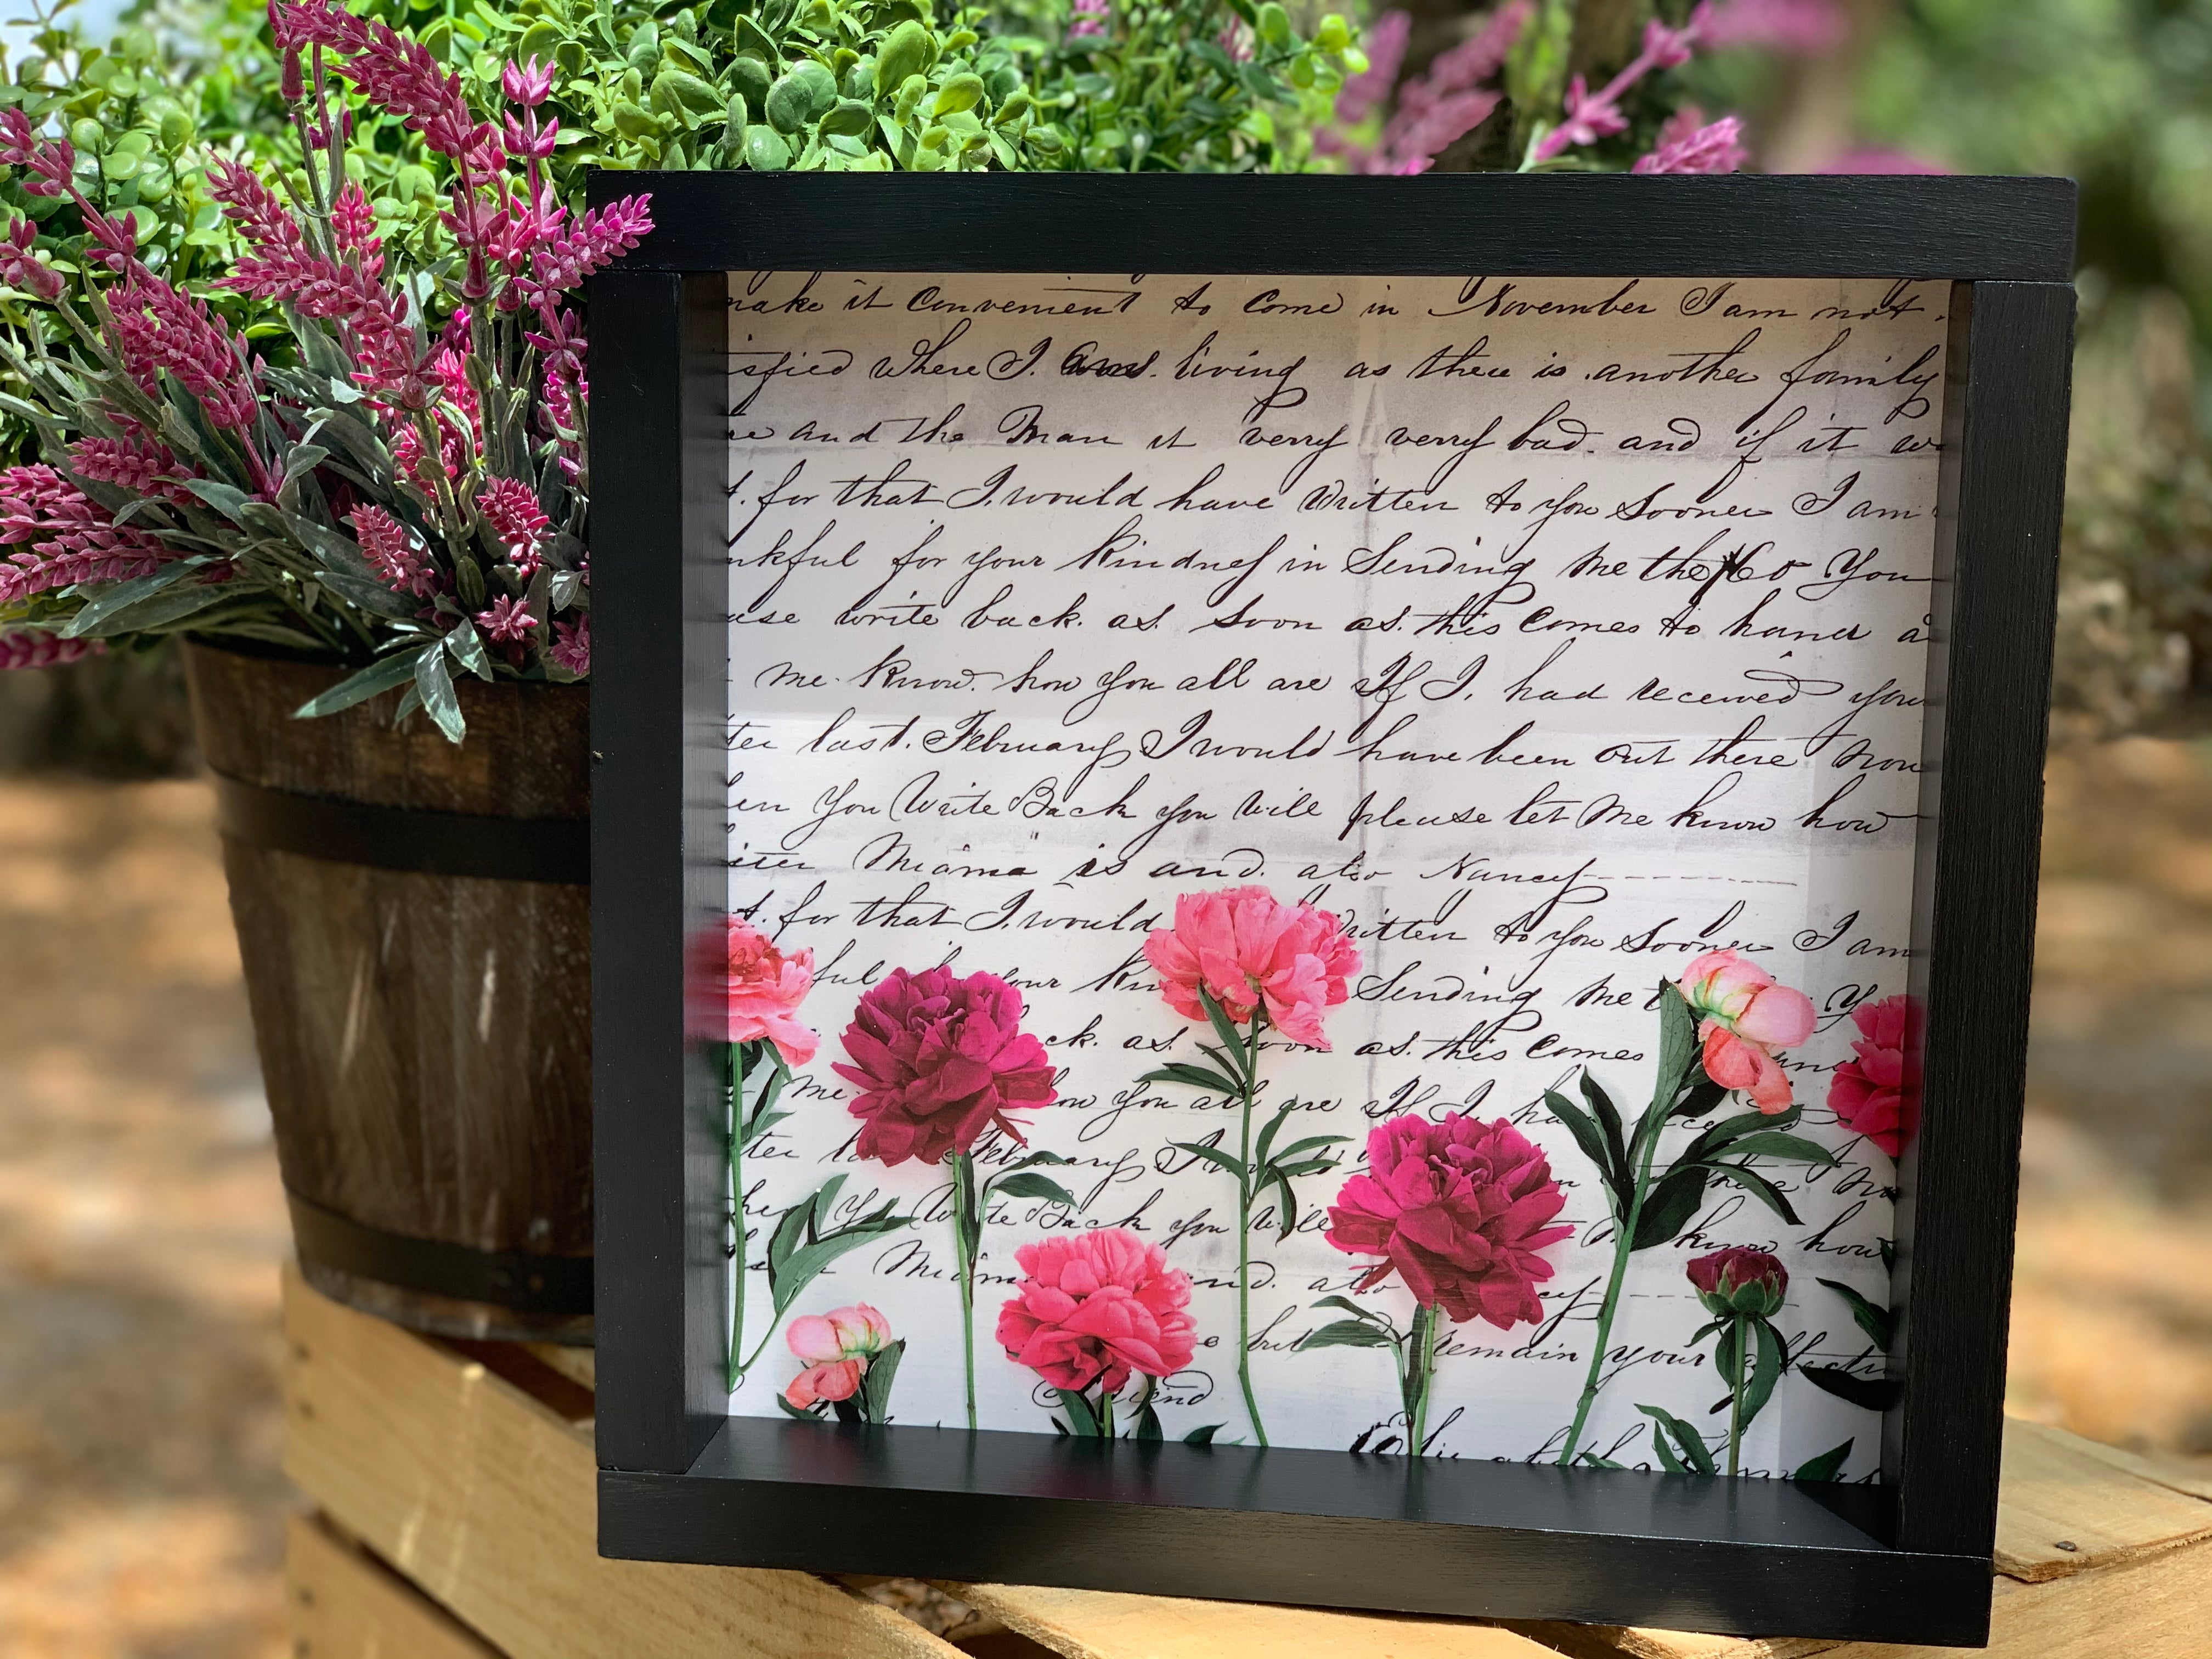 make it Convenient to Come in November I am not
isfied where I. am. living as thee is another family
re and the Man it verry verry bad. and if it w
t. for that I. would have Written to you Sooner I am
nkful for your kindness in Sending me the $60 You
ase write back. as. soon as. this Comes to hand a
me. know. how you all are If I. had received you
ter last. February I would have been out there now
en You Write Back you will please let me know how
ister Miama is and. also Nancy
t. for that I. would ritten to you Sooner I am
ful your Kn Sending me t Y
ck. as. soon as. this Comes
me. ow you all are If I. ha
ter la February I
hen You W te Back you will know how
Miama nd. also cy
e but remain your affecti
Friend
Elizabeth